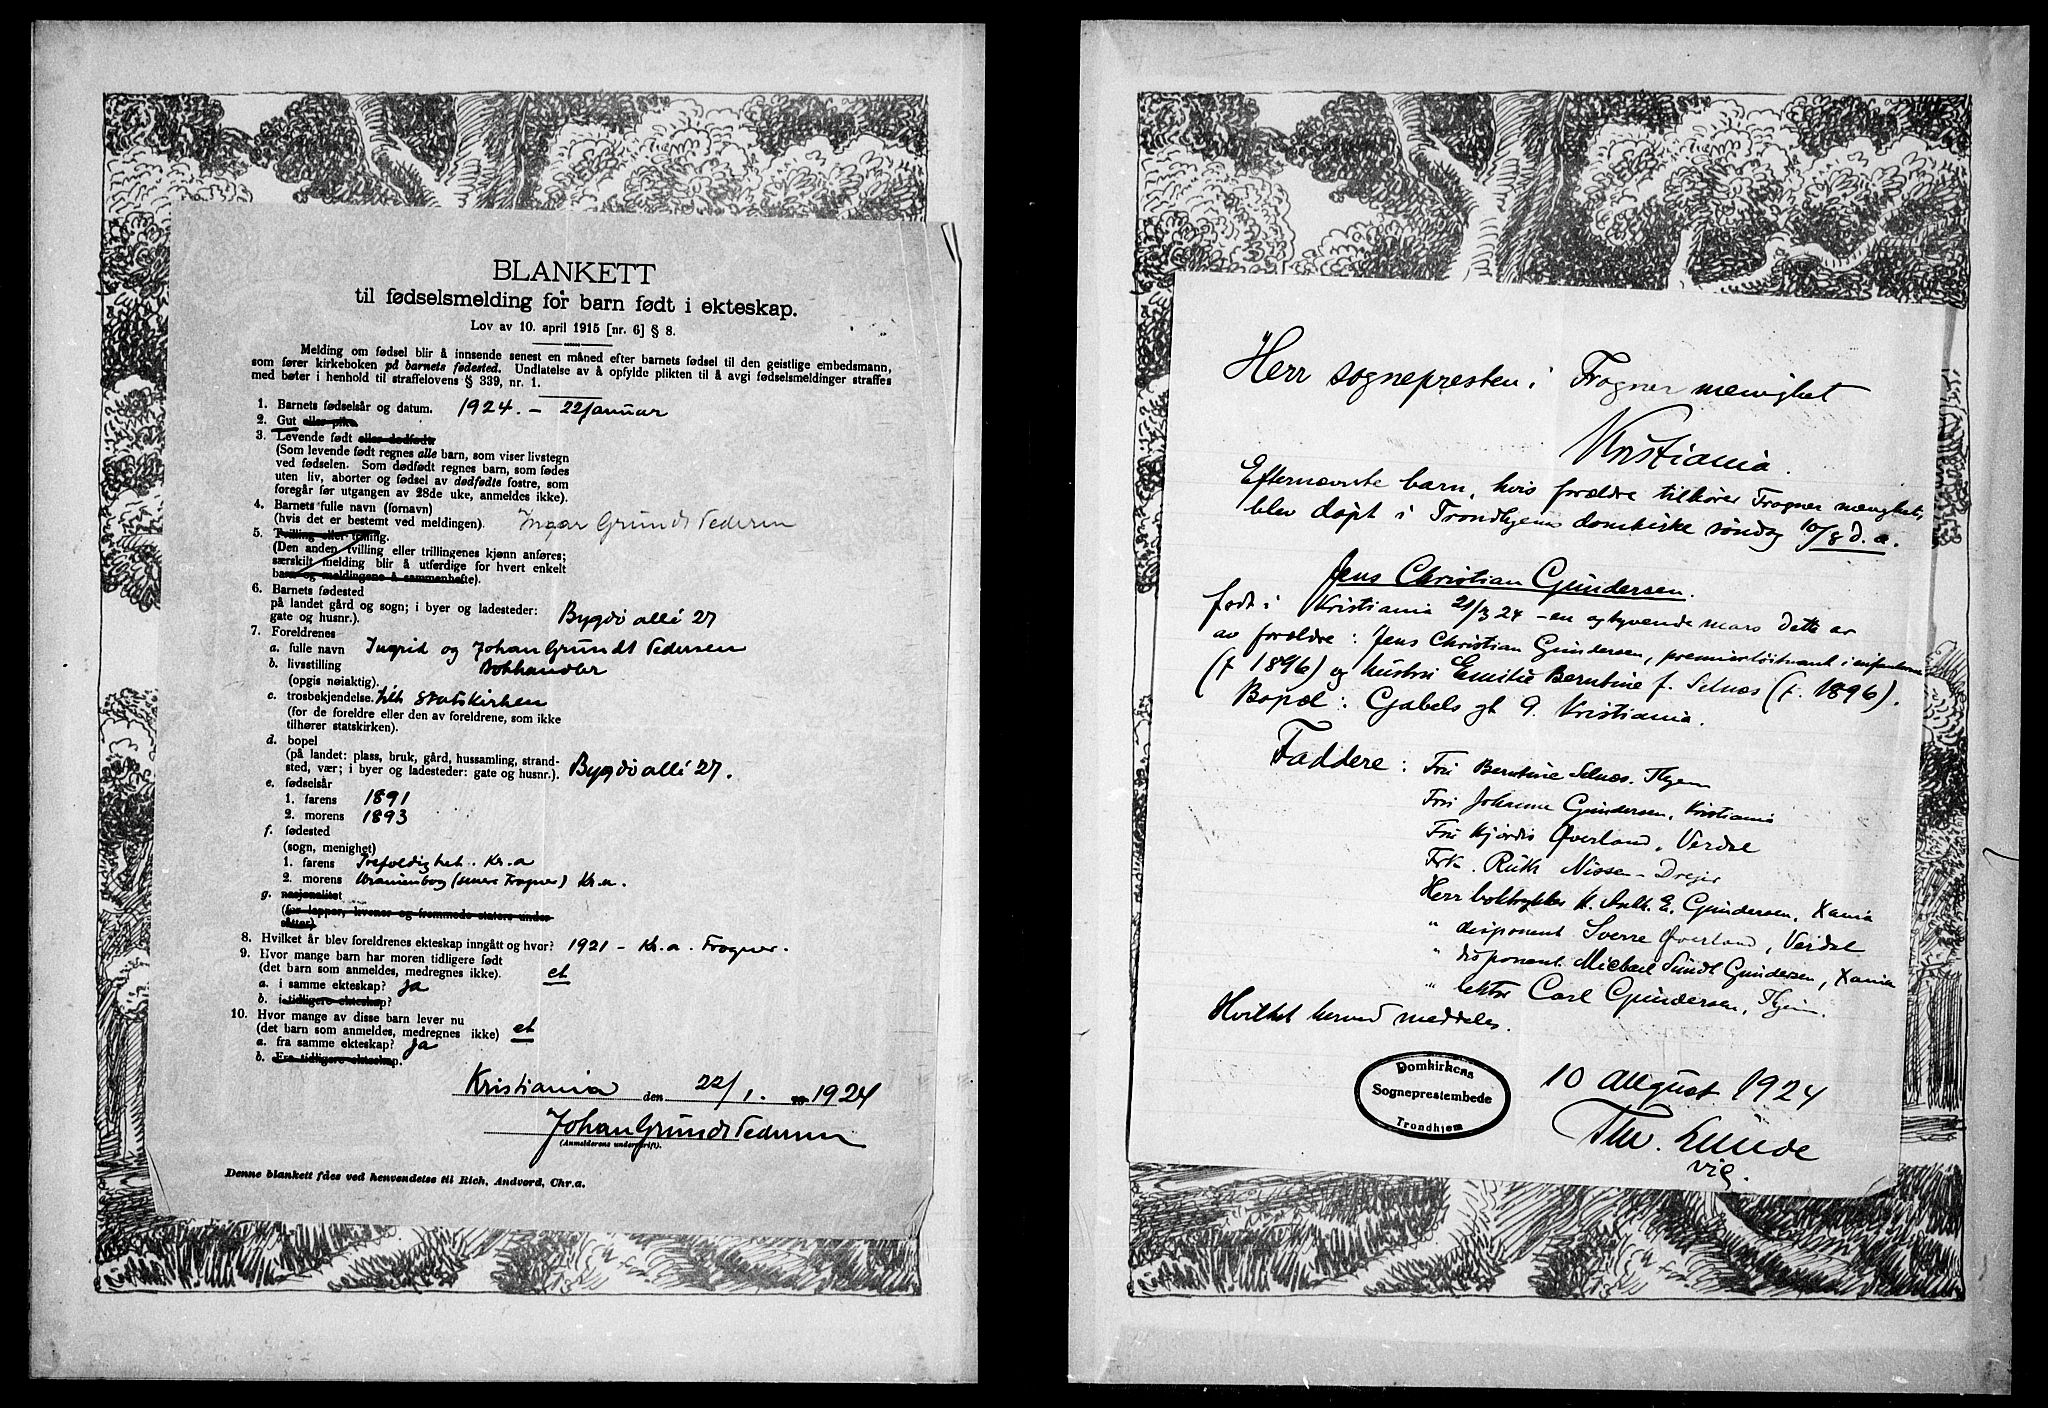 BLANKETT
til fødselsmelding for barn født i ekteskap.
Lov av 10. april 1915 [nr. 6] § 8.
Melding om fødsel blir å innsende senest en måned efter barnets fødsel til den geistlige embedsmann,
som fører kirkeboken på barnets fødested. Undlatelse av å opfylde plikten til å avgi fødselsmeldinger straffes
med bøter i henhold til straffelovens § 339, nr. 1.
1. Barnets fødselsår og datum. 1924. - 22 januar
2. Gut eller pike.
3. Levende født eller dødfødt
(Som levende født regnes alle barn, som viser livstegn
ved fødselen. Som dødfødt regnes barn, som fødes
uten liv, aborter og fødsel av dødfødte fostre, som
foregår før utgangen av 28de uke, anmeldes ikke).
4. Barnets fulle navn (fornavn)
(hvis det er bestemt ved meldingen). Ingar Grundt Pedersen
5. Tvilling eller trilling.
(Den anden tvilling eller trillingenes kjønn anføres;
særskilt melding blir å utferdige for hvert enkelt
barn og meldingene å sammenhefte).
6. Barnets fødested
på landet gård og sogn; i byer og ladesteder:
gate og husnr.). Bygdö allé 27
7. Foreldrenes
a. fulle navn Ingrid og Johan Grundt Pedersen
b. livsstilling Bokhandler
(opgis nøiaktig).
c. trosbekjendelse. Statskirken
(for de foreldre eller den av foreldrene, som ikke
tilhører statskirken).
d. bopel
(på landet: plass, bruk, gård, hussamling, strand-
sted, vær; i byer og ladesteder: gate og husnr.). Bygdö allé 27.
e. fødselsår
1. farens 1891
2. morens 1893
f. fødested
(sogn, menighet)
1. farens Trefoldighet. Kr.a
2. morens Uranienborg (senere Frogner) Kr.a.
g. nasjonalitet
(for lapper, kvener og fremmede staters under-
såtter)
8. Hvilket år blev foreldrenes ekteskap inngått og hvor? 1921 - Kr.a. Frogner.
9. Hvor mange barn har moren tidligere født
(det barn som anmeldes, medregnes ikke). et
a. i samme ekteskap? ja
b. i tidligere ekteskap?
10. Hvor mange av disse barn lever nu
(det barn som anmeldes, medregnes ikke) et
a. fra samme ekteskap? ja
b. Fra tidligere ekteskap.
Kristiania den 22/1. 1924
Johan Grundt Pedersen
(Anmelderens underskrift).
Denne blankett fåes ved henvendelse til Rich. Andvord, Chr.a.
Herr sognepresten i Frogner menighet
Kristiania.
Efternævnte barn, hvis forældre tilhører Frogner menighet,
blev døpt i Trondhjems domkirke søndag 10/8 d. a.
Jens Christian Gundersen.
født i Kristiania 21/3 24 - en og tyvende mars dette år
av forældre: Jens Christian Gundersen, premierløitnant i infanteriet
(f. 1896) og hustru Emilie Berntine f. Selnæs (f. 1896).
Bopæl: Gabels gt 9. Kristiania.
Faddere: Fru Berntine Selnæs. Thjem
Fru Johanne Gundersen, Kristiania
Fru Hjørdis Øverland, Verdal
Frk. Ruth Nissen-Drejer
Herr boktrykker K. Anth. E. Gundersen, Xania
" disponent Sverre Øverland, Verdal
" disponent Michael Sundt Gundersen, Xania
" lektor Carl Gundersen, Thjem.
Hvilket herved meddeles.
Domkirkens
Sogneprestembede
Trondhjem
10 august 1924
Thv. Lunde
vig.